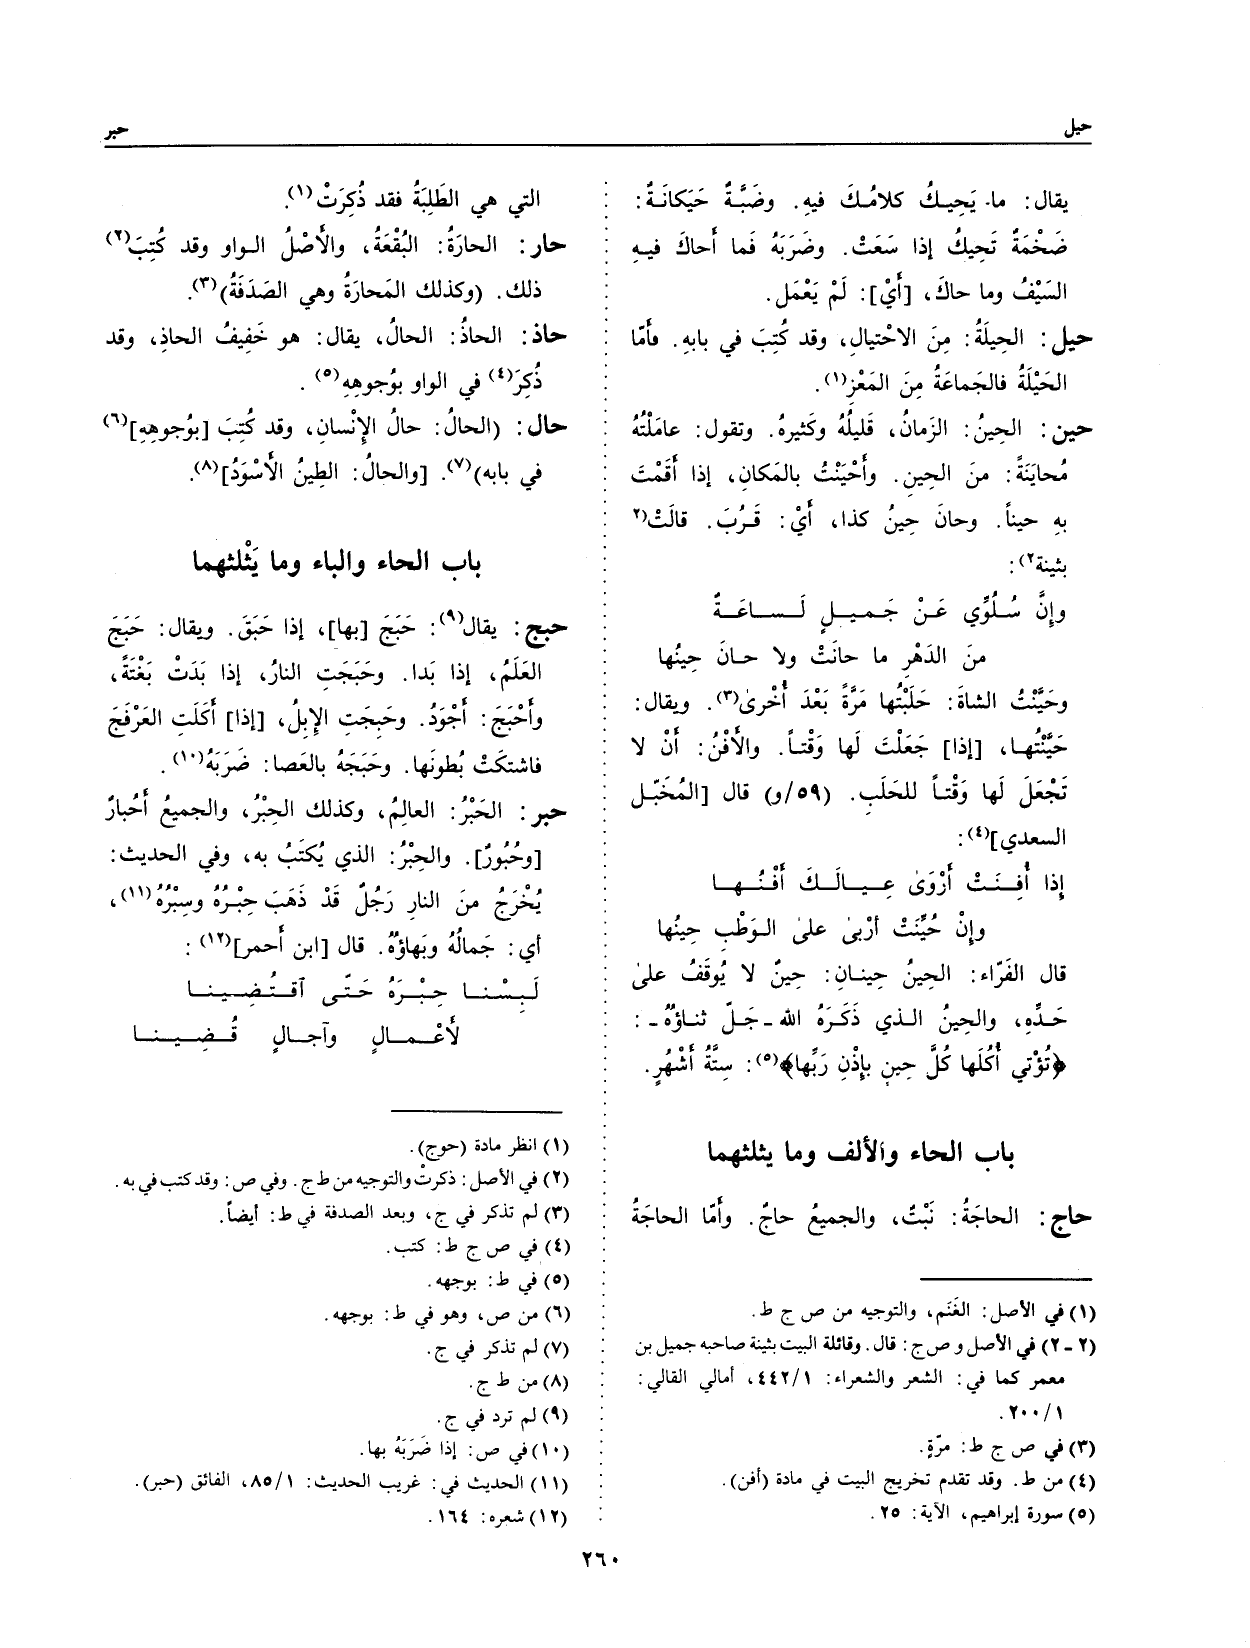 حيل
حبر
يقال: ما يَحِيكُ كلامُكَ فيهِ. وضَبَّةٌ حَيَكانَةٌ:
ضَخْمَةٌ تَحِيكُ إذا سَعَتْ. وضَرَبَهُ فَما أَحاكَ فيـهِ
السَيْفُ وما حاكَ، [أَيْ]: لَمْ يَعْمَل.
حيل: الحِيلَةُ: مِنَ الاحْتيالِ، وقد كُتِبَ في بابهِ. فأَمّا
الحَيْلَةُ فالجَماعَةُ مِنَ المَعْزِ(١).
حين: الحِينُ: الزمانُ، قَليلُهُ وكَثيرهُ. وتقول: عامَلْتُهُ
مُحايَنَةً: منَ الحِينِ. وأَحْيَنْتُ بالمَكانِ، إذا أَقَمْتَ
بهِ حيناً. وحانَ حِينُ كذا، أَيْ: قَـرُبَ. قالَتْ(٢
بثينة٢):
وإنَّ سُـلُوِّي عَـنْ جَـميـلٍ لَـسـاعَـةٌ
منَ الدَهْرِ ما حانَتْ ولا حـانَ حِينُها
وحَيَّنْتُ الشاةَ: حَلَبْتُها مَرَّةً بَعْدَ أُخْرىٰ(٣). ويقال:
حَيَّنْتُهـا، [إذا] جَعَلْتَ لَها وَقْتـاً. والأَفْنُ: أَنْ لا
تَجْعَلَ لَها وَقْتـاً للحَلَبِ. (٥٩/و) قال [المُخَبّل
السعدي](٤):
إذا أُفِـنَـتْ أَرْوَىٰ عِـيـالَـكَ أَفْـنُـهـا
وإنْ حُيِّنَتْ أربىٰ علىٰ الـوَطْبِ حِينُها
قال الفَرّاء: الحِينُ حِينـانِ: حِينٌ لا يُوقَفُ علىٰ
حَـدِّهِ، والحِينُ الـذي ذَكَـرَهُ الله ـ جَـلّ ثنـاؤهُ ـ :
﴿تُؤْتي أُكُلَها كُلَّ حِينٍ بإذْنِ رَبِّها﴾(٥): سِتَّةُ أَشْهُرٍ.
باب الحاء والألف وما يثلثهما
حاج: الحاجَةُ: نَبْتٌ، والجميعُ حاجٌ. وأَمّا الحاجَةُ
(١) في الأصل: الغَنَم، والتوجيه من ص ج ط.
(٢ - ٢) في الأصل و ص ج: قال. وقائلة البيت بثينة صاحبه جميل بن
معمر كما في: الشعر والشعراء: ٤٤٢/١، أمالي القالي:
٢٠٠/١.
(٣) في ص ج ط: مرّةٍ.
(٤) من ط. وقد تقدم تخريج البيت في مادة (أفن).
(٥) سورة إبراهيم، الآية: ٢٥.
التي هي الطَلِبَةُ فقد ذُكِرَتْ(١).
حار: الحارَةُ: البُقْعَةُ، والأَصْلُ الـواو وقد كُتِبَ(٢)
ذلك. (وكذلك المَحارَةُ وهي الصَدَفَةُ)(٣).
حاذ: الحاذُ: الحالُ، يقال: هو خَفِيفُ الحاذِ، وقد
ذُكِرَ(٤) في الواو بوُجوهِهِ(٥) .
حال: (الحالُ: حالُ الإنْسانِ، وقد كُتِبَ [بوُجوهِهِ](٦)
في بابه)(٧). [والحالُ: الطِينُ الأَسْوَدُ](٨).
باب الحاء والباء وما يَثْلثهما
حبج: يقال(٩): حَبَجَ [بها]، إذا حَبَقَ. ويقال: حَبَجَ
العَلَمُ، إذا بَدا. وحَبَجَتِ النارُ، إذا بَدَتْ بَغْتَةً،
وأَحْبَجَ: أَجْوَدُ. وحَبِجَتِ الإبِلُ، [إذا] أَكَلَتِ العَرْفَجَ
فاشتكَتْ بُطونَها. وحَبَجَهُ بالعَصا: ضَرَبَهُ(١٠).
حبر: الحَبْرُ: العالِمُ، وكذلك الحِبْرُ، والجميعُ أَحْبارٌ
[وحُبُورٌ]. والحِبْرُ: الذي يُكتَبُ به، وفي الحديث:
يُخْرَجُ منَ النارِ رَجُلٌ قَدْ ذَهَبَ حِبْـرُهُ وسِبْرُهُ(١١)،
أي: جَمالُهُ وبَهاؤهُ. قال [ابن أَحمر](١٢) :
لَـبِـسْـنـا حِـبْـرَهُ حَـتّـى آقـتُـضِـيـنـا
لأَعْـمـالٍ وآجـالٍ قُـضِـيـنـا
(١) انظر مادة (حوج).
(٢) في الأصل: ذكرتْ والتوجيه من ط ج. وفي ص: وقد كتب في به.
(٣) لم تذكر في ج، وبعد الصدفة في ط: أيضاً.
(٤) في ص ج ط: كتب.
(٥) في ط: بوجهه.
(٦) من ص، وهو في ط: بوجهه.
(٧) لم تذكر في ج.
(٨) من ط ج.
(٩) لم ترد في ج.
(١٠) في ص: إذا ضَرَبَهُ بها.
(١١) الحديث في: غريب الحديث: ٨٥/١، الفائق (حبر).
(١٢) شعره: ١٦٤.
٢٦٠